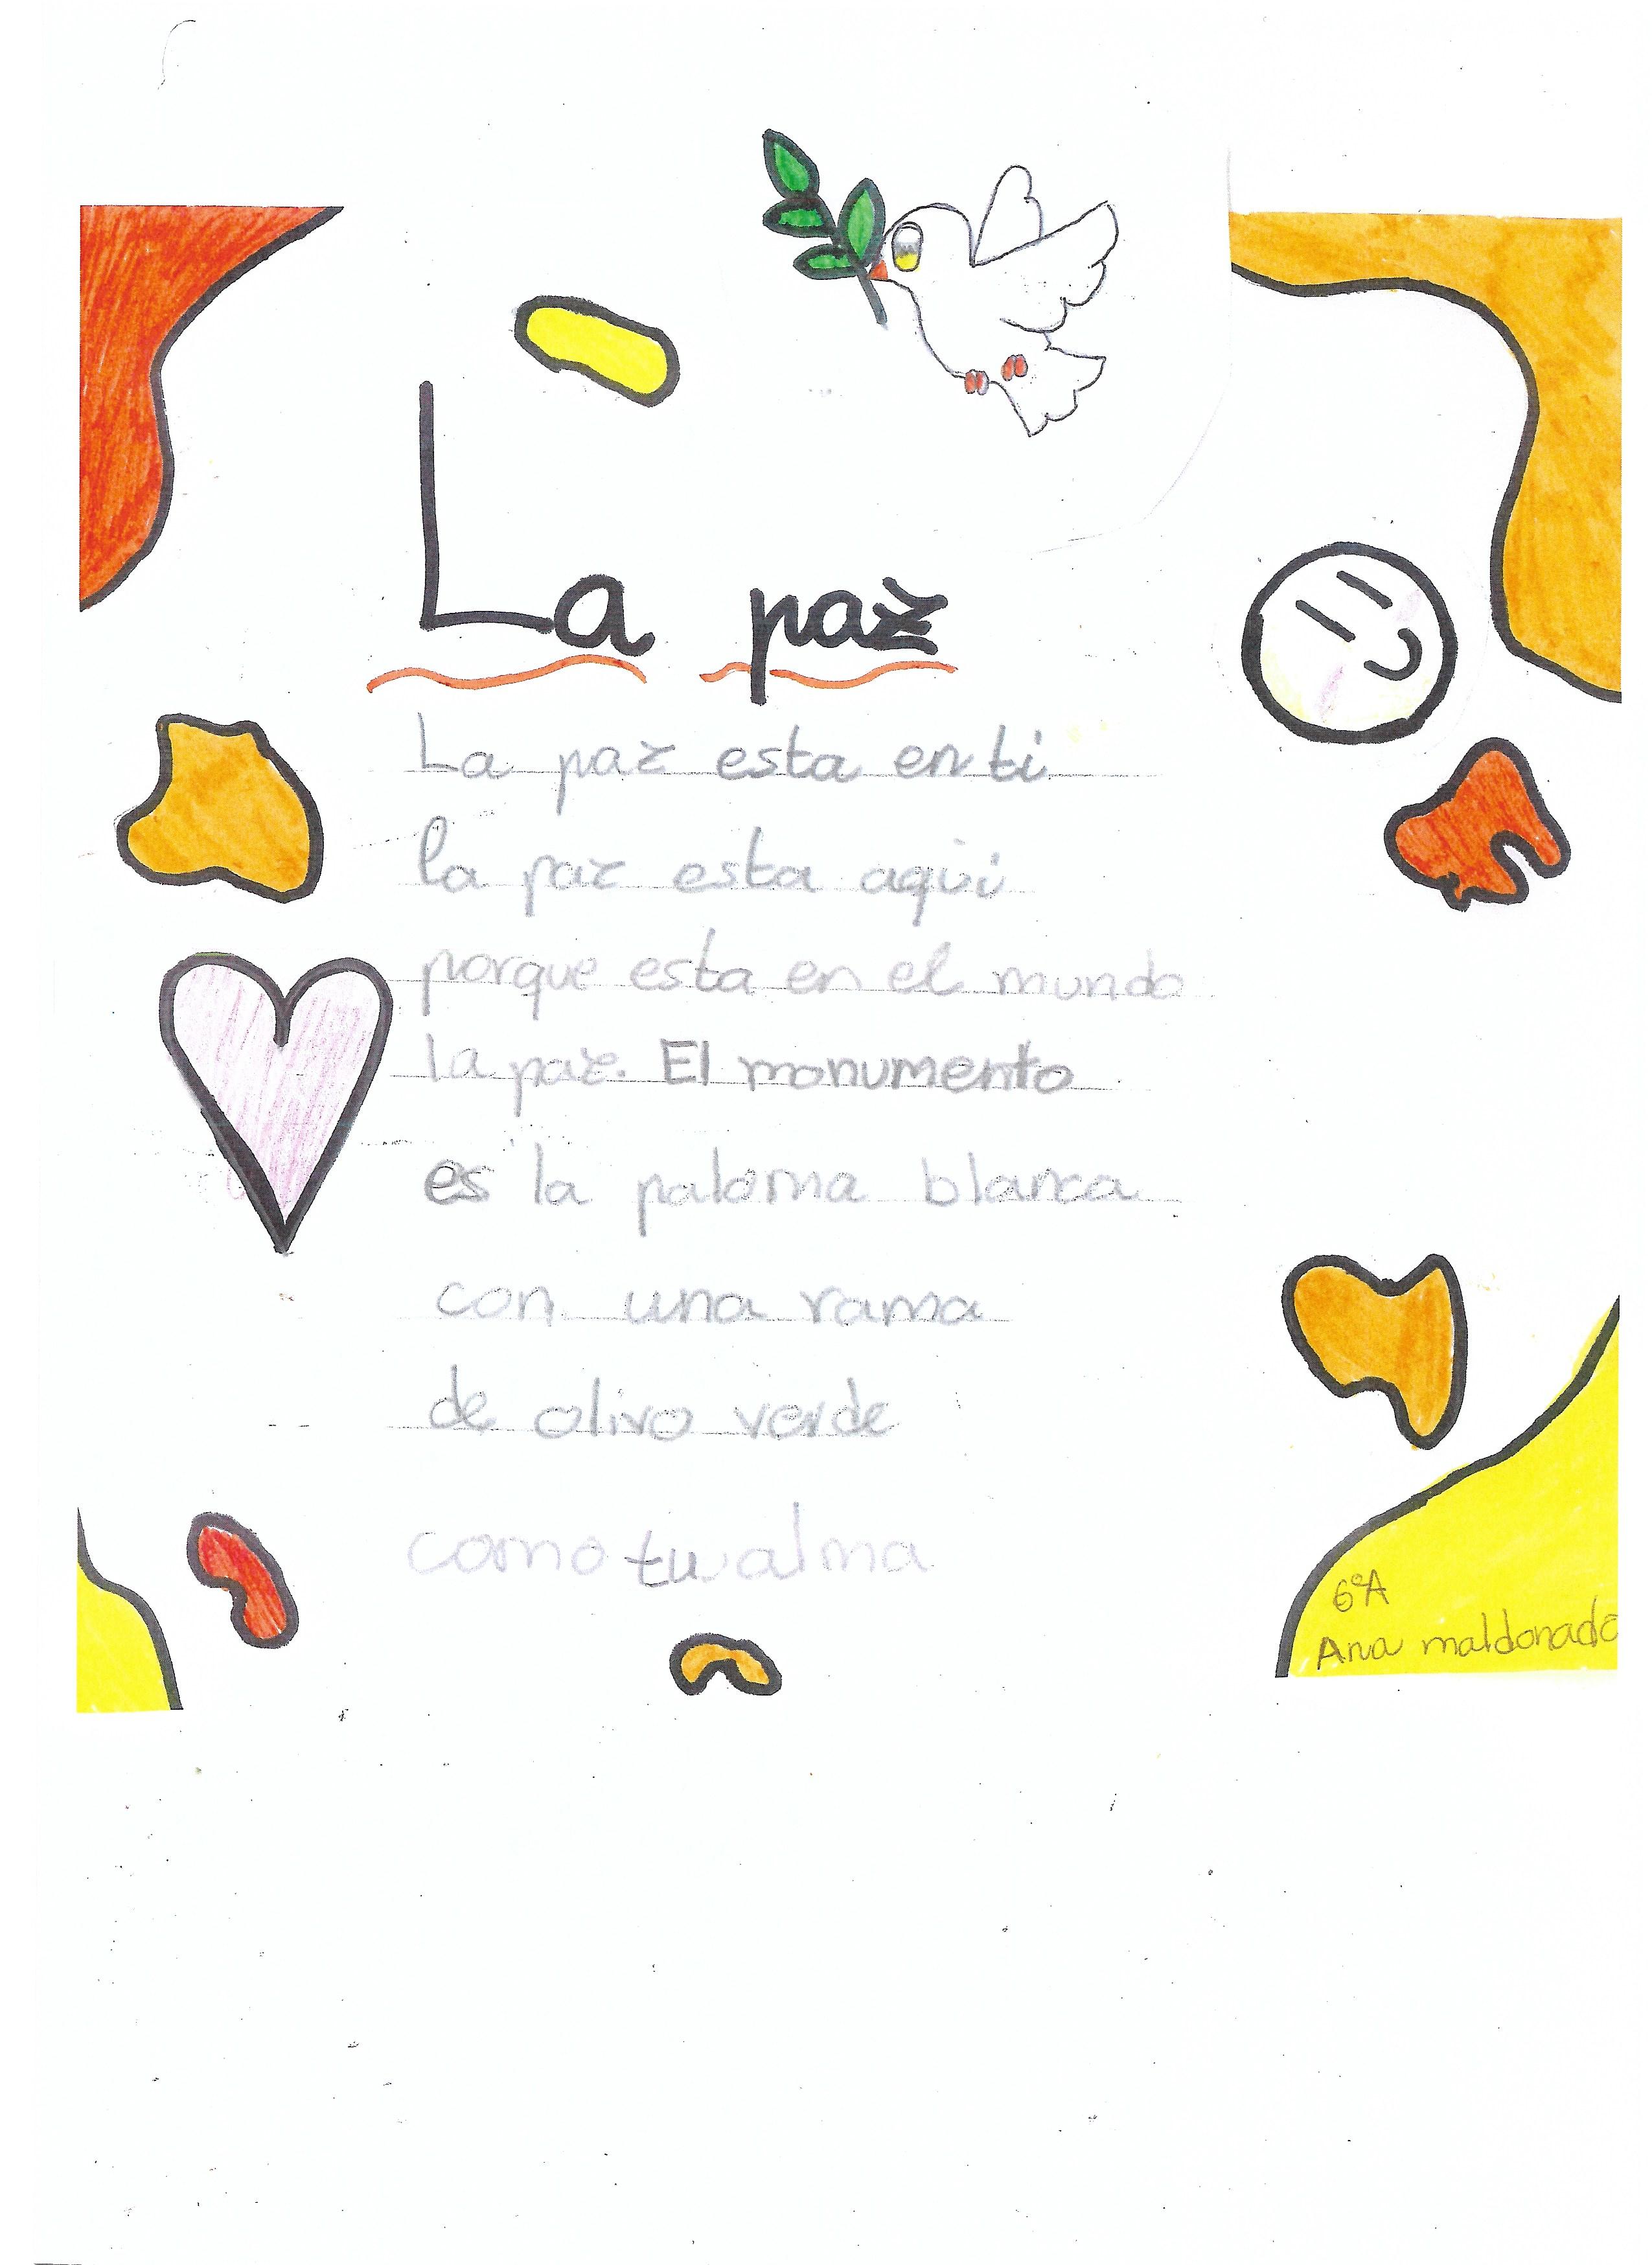 La paz
La paz esta en ti
la paz esta aqui
porque esta en el mundo
la paz. El monumento
es la paloma blanca
con una rama
de olivo verde
como tu alma
6ºA
Ana maldonado